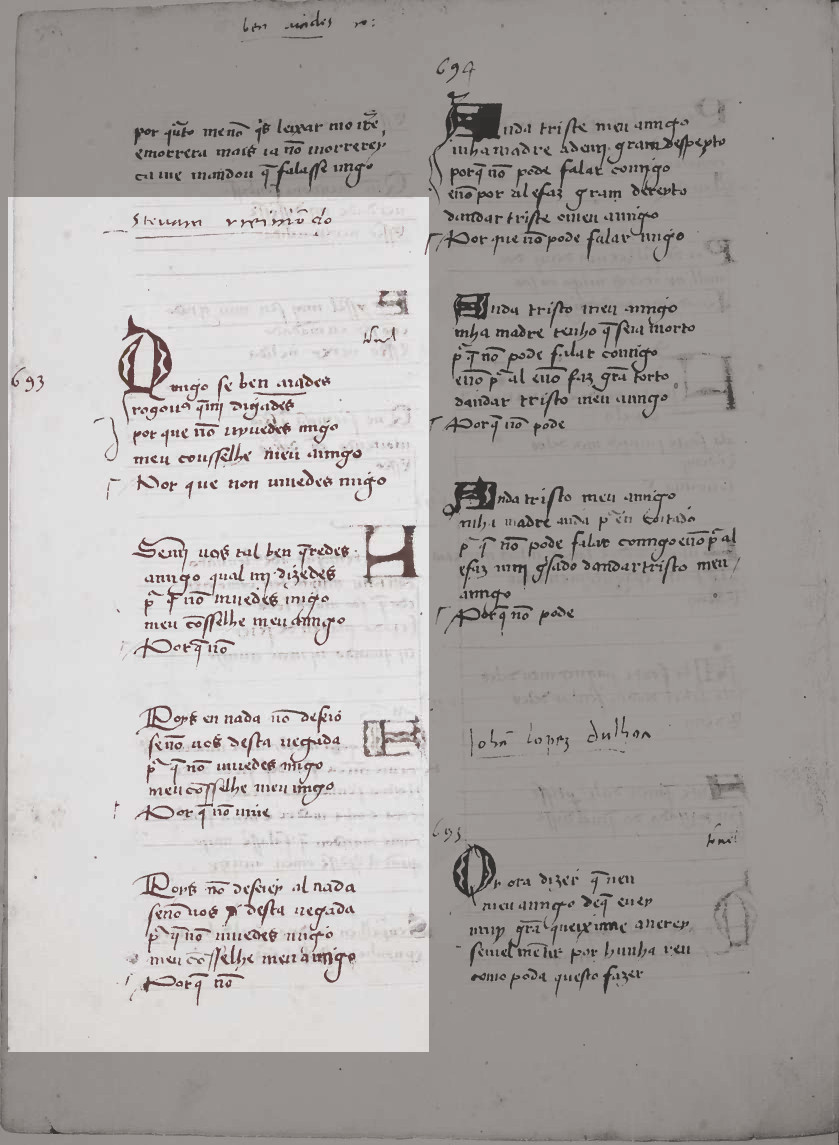 ben
por q̃to me nõ q̃s leixar
e morrera mais ia nõ morrerey
ca me mandou q̃ falasse migo
Stevam
693
tornel
Amigo se ben aiades
rogovꝯ q̃ mi digades
por que nõ vivedes migo
meu consselhe meu amigo
Por que non vivedes migo
Se mi vos tal ben q̃redes
amigo qual mi dizedes
p̃ q̃ nõ vivedes migo
meu cõsselhe meu amigo
Por q̃ nõ
Poys en nada nõ deseio
senõ vos desta vegada
p̃ q̃ nõ vivedes migo
meu cõsselhe meu migo
Por q̃ nõ vive
Poys nõ deseiey al nada
senõ vos desta vegada
p̃ q̃ nõ vivedes migo
meu cõsselhe meu amigo
Por q̃ nõ
694
Anda triste meu amigo
mha madre a de mi gram despeyto
por q̃ nõ pode falar comigo
e nõ por al e faz gram dereyto
dandar triste o meu amigo
Por que nõ pode falar migo
Anda tristo meu amigo
mha madre tenho q̃ seia morto
p̃ q̃ nõ pode falar comigo
e nõ p̃ al e nõ faz grã torto
dandar tristo meu amigo
Por q̃ nõ pode
Anda tristo meu amigo
mha madre anda p̃ en coitado
p̃ q̃ nõ pode falar comigo e nõ p̃ al
e faz mi g̃sado dandar tristo meu
amigo
Por q̃ nõ pode
Johã lopez dulhoa
695
tornel
Or ora dizer q̃ ven
meu amigo de q̃ eu ey
muy grã queixume a verey
se mel mẽtir por hunha ren
como poda questo fazer